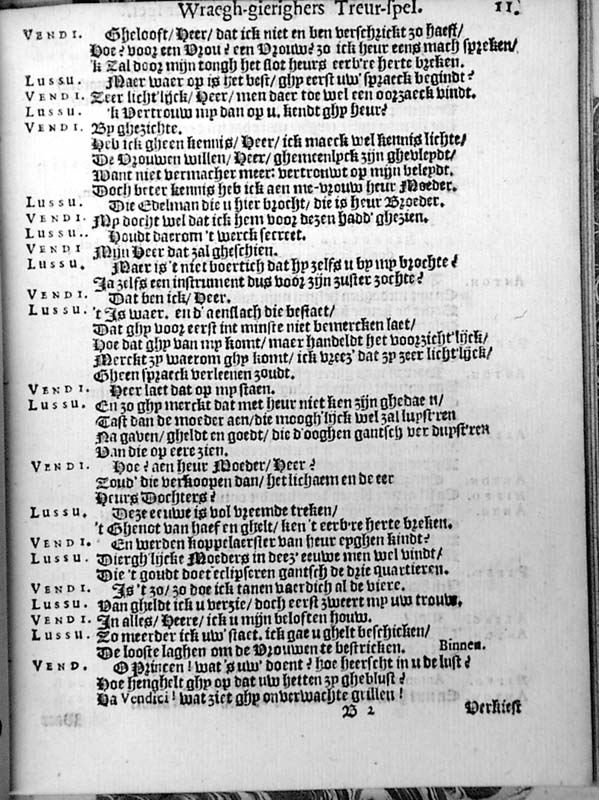 Wraegh-gierighers Treur-spel. 11.
VENDI. Ghelooft/ Heer/ dat ick niet en ben verschrickt zo haest/
Hoe? voor een Vrou? een Vrouw? zo ick heur eens mach spreken/
'k Zal door mijn tongh het slot heurs eerb're herte breken.
LUSSU. Maer waer op is het best/ ghy eerst uw' spraeck begindt?
VENDI. Zeer licht'lijck/ Heer/ men daer toe wel een oorzaeck vindt.
LUSSU. 'k Vertrouw my dan op u. kendt ghy heur?
VENDI. By ghezichte.
Heb ick gheen kennis/ Heer/ ick maeck wel kennis lichte/
De Vrouwen willen/ Heer/ ghemeenlyck zijn ghevleydt/
Want niet vermacher meer: vertrouwt op mijn beleydt.
Doch beter kennis heb ick aen me-vrouw heur Moeder.
LUSSU. Die Edelman die u hier brocht/ die is heur Broeder.
VENDI. My docht wel dat ick hem voor dezen hadd' ghezien.
LUSSU.. Houdt daerom 't werck secreet.
VENDI Mijn Heer dat zal gheschien.
LUSSU. Maer is 't niet boertich dat hy zelfs u by my brochte?
Ja zelfs een instrument dus voor zijn zuster zochte?
VENDI. Dat ben ick/ Heer.
LUSSU. 't Is waer. en d' aenslach die bestaet/
Dat ghy voor eerst int minste niet bemercken laet/
Hoe dat ghy van my komt/ maer handeldt het voorzicht'lijck/
Merckt zy waerom ghy komt/ ick vreez' dat zy zeer licht'lijck/
Gheen spraeck verleenen zoudt.
VENDI. Heer laet dat op my staen.
LUSSU. En zo ghy merckt dat met heur niet ken zijn ghedaen/
Tast dan de moeder aen/ die moogh'lijck wel zal luyst'ren
Na gaven/ gheldt en goedt/ die d'ooghen gantsch ver duyst'ren
Van die op eere zien.
VENDI. Hoe? aen heur Moeder/ Heer?
Zoud' die verkoopen dan/ het lichaem en de eer
Heurs Dochters?
LUSSU. Deze eeuwe is vol vreemde treken/
't Ghenot van haef en ghelt/ ken 't eerb're herte breken.
VENDI. En werden koppelaerster van heur eyghen kindt?
LUSSU. Diergh'lijcke Moeders in deez' eeuwe men wel vindt/
Die 't goudt doet eclipseren gantsch de drie quartieren.
VENDI. Is 't zo/ zo doe ick tanen vaerdich al de viere.
LUSSU. Van gheldt ick u verzie/ doch eerst zweert my uw trouw.
VENDI. In alles/ Heere/ ick u mijn beloften houw.
LUSSU. Zo meerder ick uw' staet. ick gae u ghelt beschicken/
De looste laghen om de Vrouwen te bestricken. Binnen.
VEND. O Princen! wat 's uw' doent? hoe heerscht in u de lust?
Hoe henghelt ghy op dat uw hetten zy gheblust?
Ha Vendici! wat ziet ghy onverwachte grillen!
B 2 Verkiest